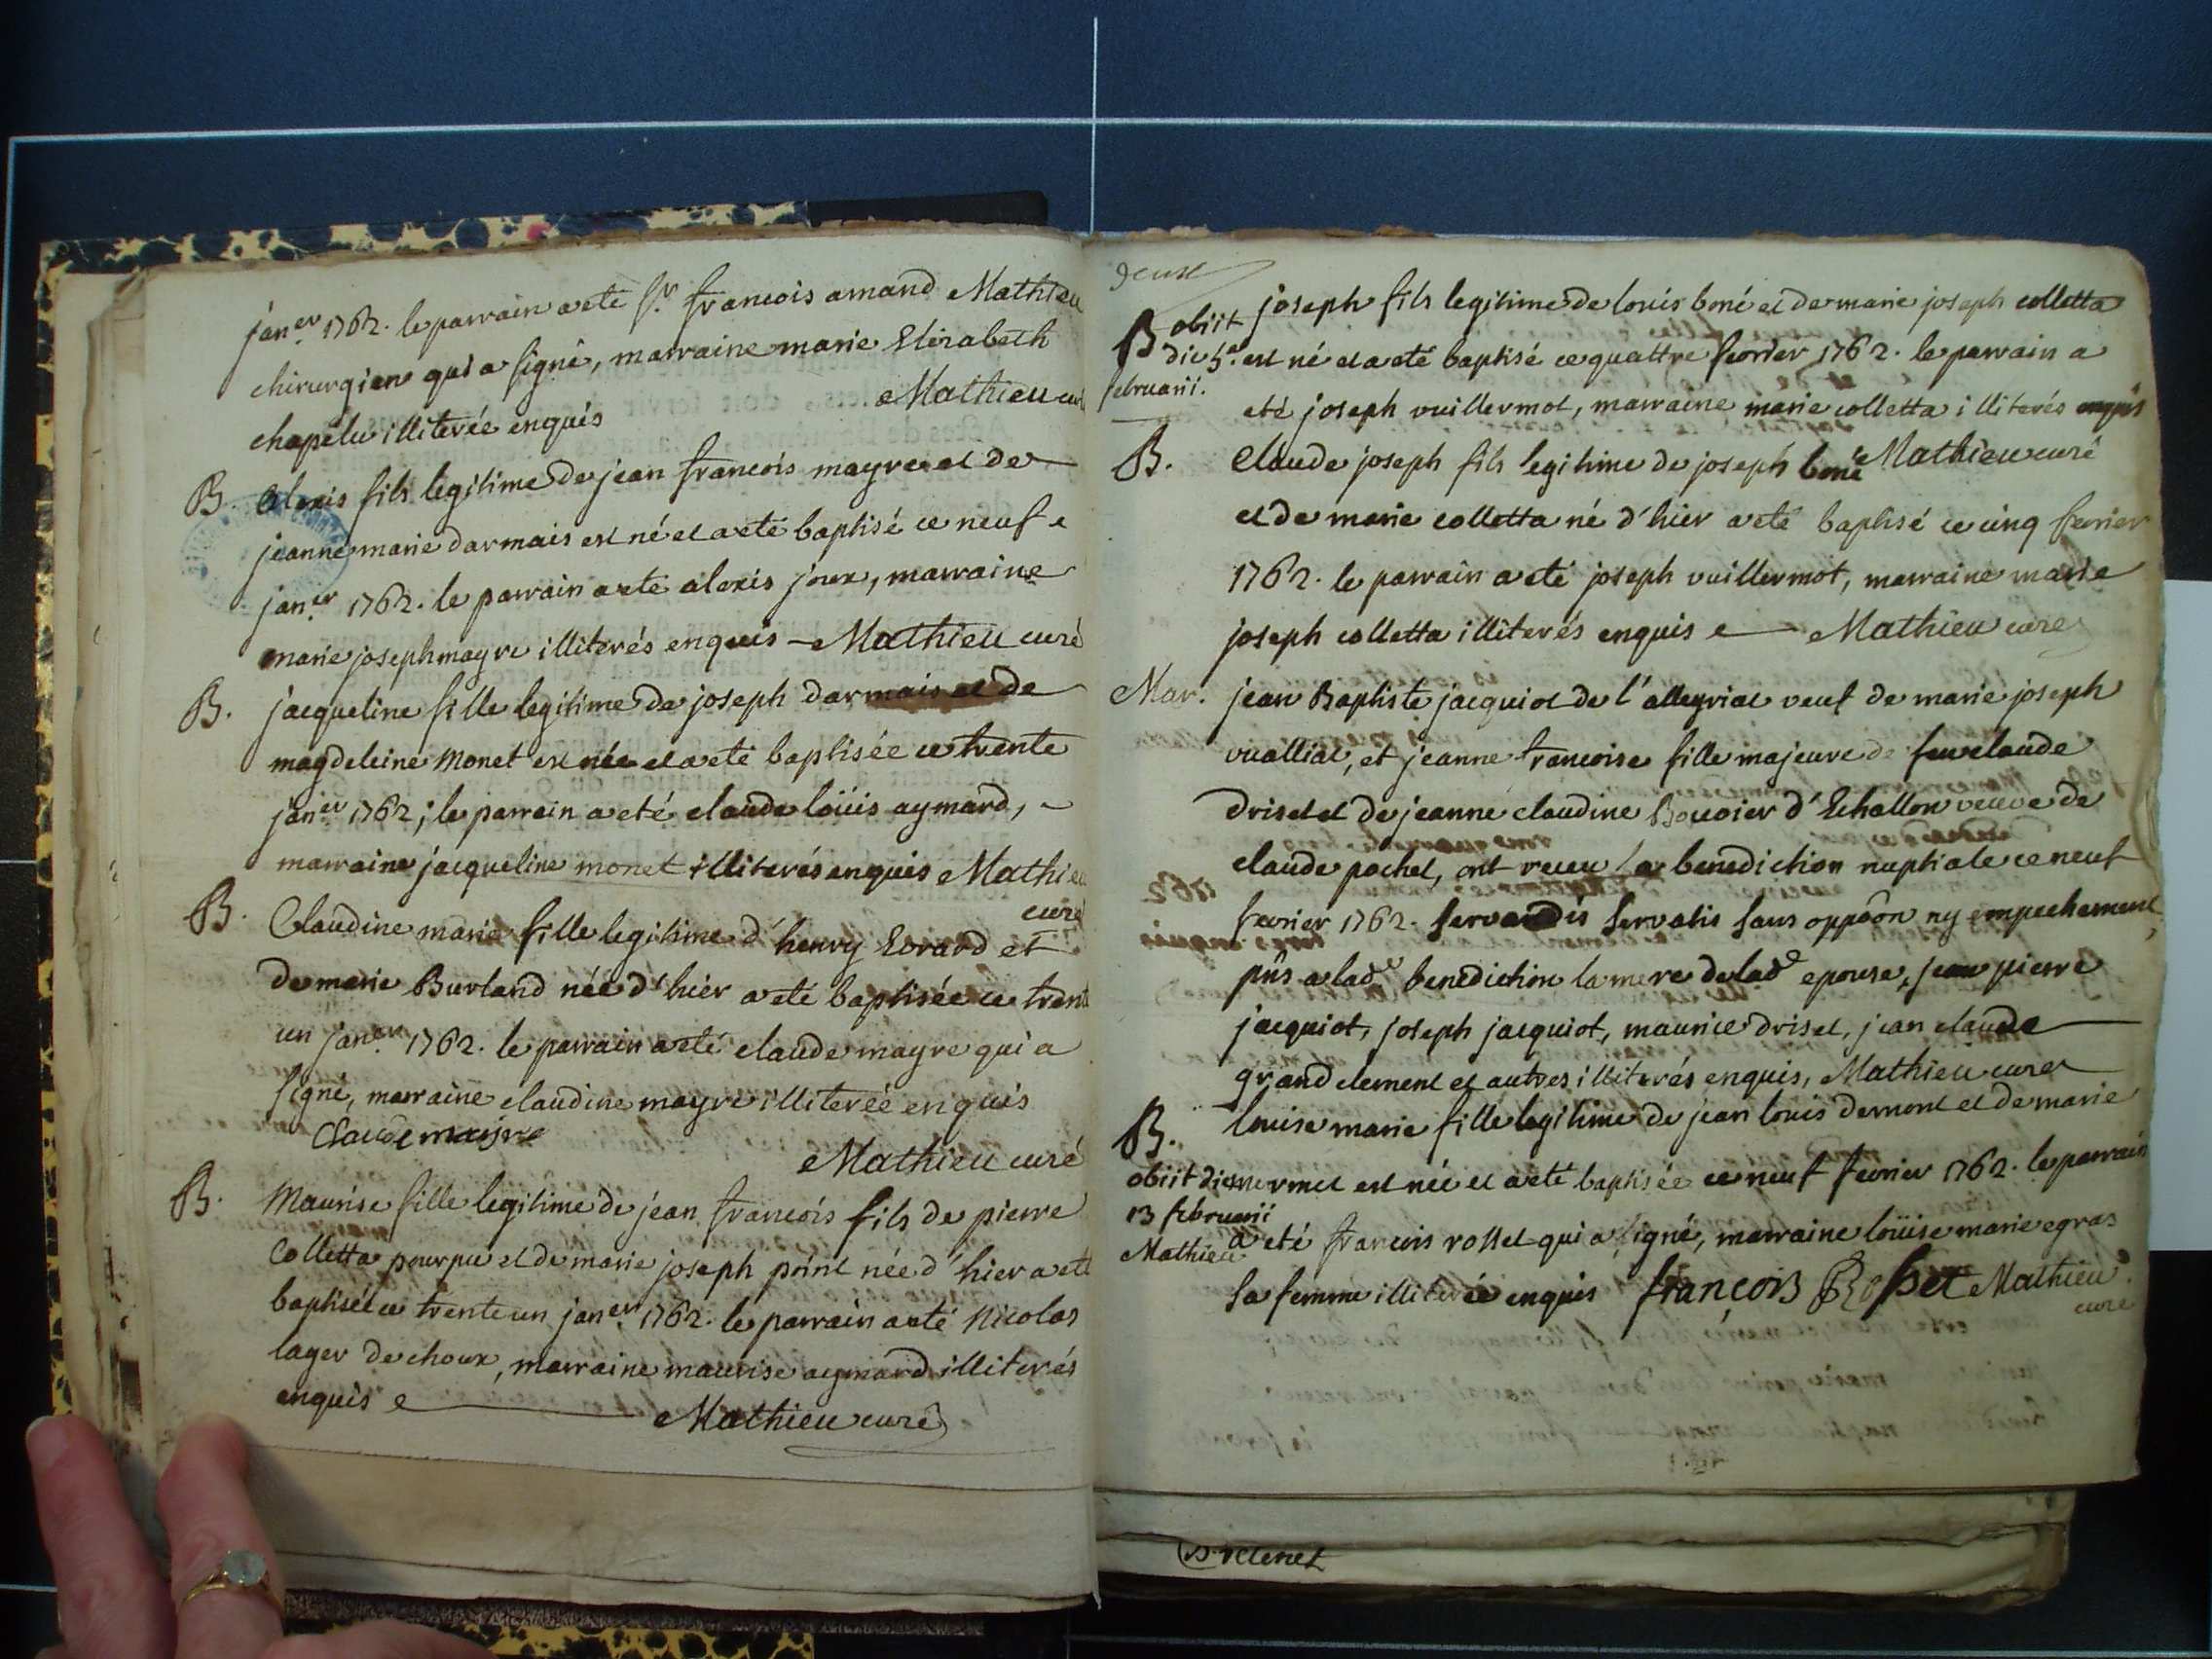 jan.er 1762. le parrain a eté S.r francois amand Mathieu
chirurgien qui a signé, marraine marie Elizabeth
chapelu illiterée enquis Mathieu curé
B. Alexis fils legitime de jean francois mayre et de
jeanne marie darmais est né et a eté baptisé ce neuf
jan.er 1762. le parrain a eté alexis joux, marraine
marie joseph mayre illiterés enquis - Mathieu curé
B. jacqueline fille legitime de joseph darmais et de
magdeleine Monet est née et a eté baptisée ce trente
jan.er 1762; le parrain a eté claude loüis aymard,
marraine jacqueline monet illiterés enquis Mathieu
curé
B. Claudine marie fille legitime d'henry Evrard et
de marie Burland née d'hier a eté baptisée ce trente
un jan.er 1762. le parrain a eté claude mayre qui a
signé, marraine claudine mayre illiterée enquis
Claude mayre
Mathieu curé
B. Maurise fille legitime de jean francois fils de pierre
Colletta et de marie joseph print née d'hier a eté
baptisée ce trente un jan.er 1762. le parrain a eté Nicolas
lager de choux, marraine maurise aymard illiterés
enquis Mathieu curé
B. joseph fils legitime de louis boné et de marie joseph colletta
obiit
die 5.a
februarii.
est né et a eté baptisé ce quattre fevrier 1762. le parrain a
eté joseph vuillermot, marraine marie colletta illiterés enquis
Mathieu curé
B. Claude joseph fils legitime de joseph boné
et de marie colletta né d'hier a eté baptisé ce cinq fevrier
1762. le parrain a eté joseph vuillermot, marraine marie
joseph colletta illiterés enquis Mathieu curé
Mar. jean Baptiste jacquiot de l'allegriat veuf de marie joseph
vualliat, et jeanne francoise fille majeure de feu claude
driset et de jeanne claudine Bouvier d'Echallon veuve de
claude pochet, ont receu la benediction nuptiale ce neuf
fevrier 1762. servandis servatis sans oppôon ny empechement,
pñs a lad.e benediction la mere de lad.e epouse, jean pierre
jacquiot, joseph jacquiot, maurice driset, jean claude
grandclement et autres illiterés enquis, Mathieu curé
B. louise marie fille legitime de jean louis demont et de marie
obiit die
13 februarii
Mathieu
mermet est née et a eté baptisée ce neuf fevrier 1762. le parrain
a eté francois rosset qui a signé, marraine loüise marie egras
sa femme illiterée enquis françois Rosset Mathieu
curé